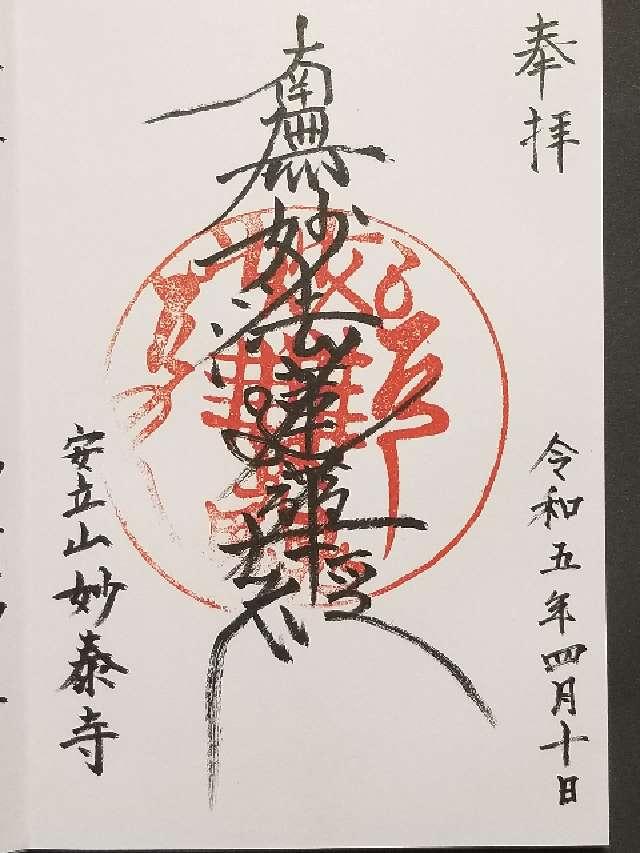 奉拝
令和五年四月十日
南無妙法蓮華経
安立山妙泰寺